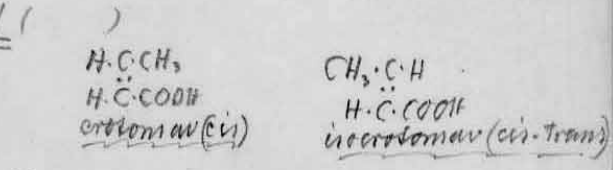 ( )
H·C·CH₃
H·C·COOH
crotonsav (cis)
CH₃·C·H
H·C·COOH
isocrotonsav (cis-trans)